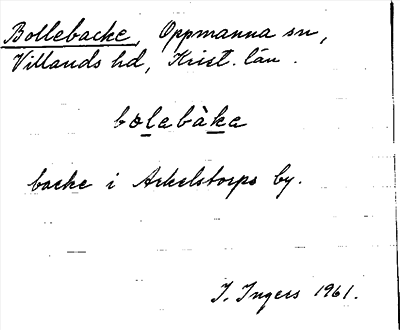 Bollebacke, Oppmanna sn,
Villands hd, Krist. län.
bolebàka
backe i Arkelstorps by.
I. Ingers 1961.